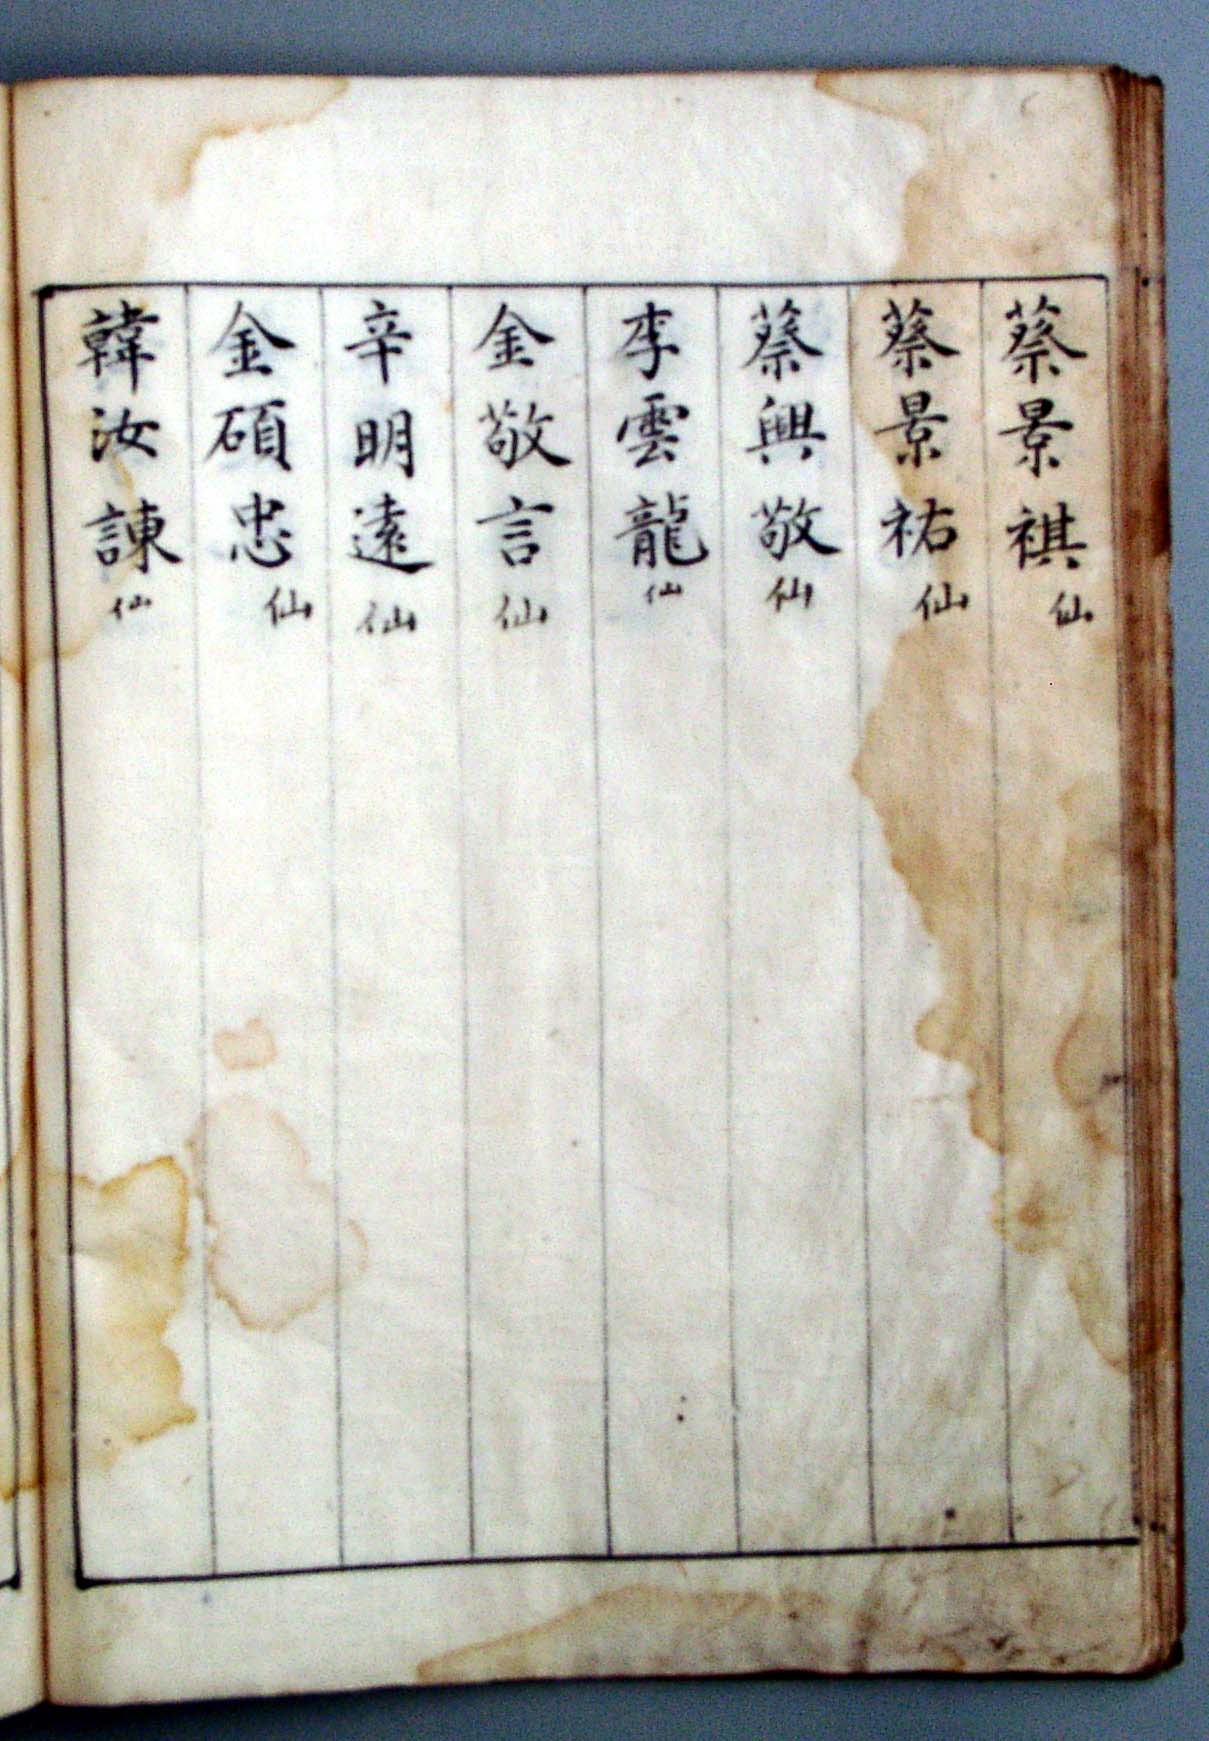 蔡景祺仙
蔡景祐仙
蔡興敬仙
李雲龍仙
金敬言仙
辛明遠仙
金碩忠仙
韓汝諫仙